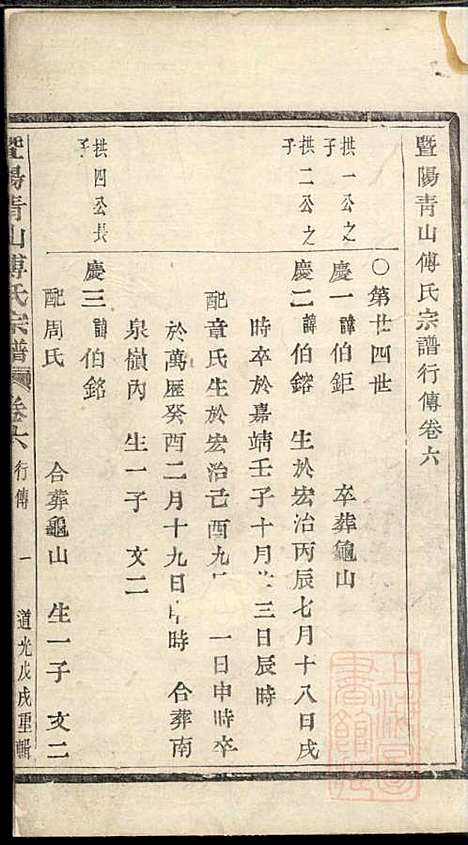 暨陽青山傅氏宗譜行傳卷六
〇第廿四世
拱一公之子
慶一 諱伯鉅 卒葬龜山
拱二公之子
慶二 諱伯鎔 生於宏治丙辰七月十八日戌
時卒於嘉靖壬子十月廿三日辰時
配章氏生於宏治己酉九月 一日申時卒
於萬歷癸酉二月十九日申時 合葬南
泉嶺內 生一子 文二
拱四公長子
慶三 諱伯銘
配周氏 合葬龜山 生一子 文二
暨陽青山傅氏宗譜 卷六 行傳 一 道光戊戌重輯
上海圖書館藏